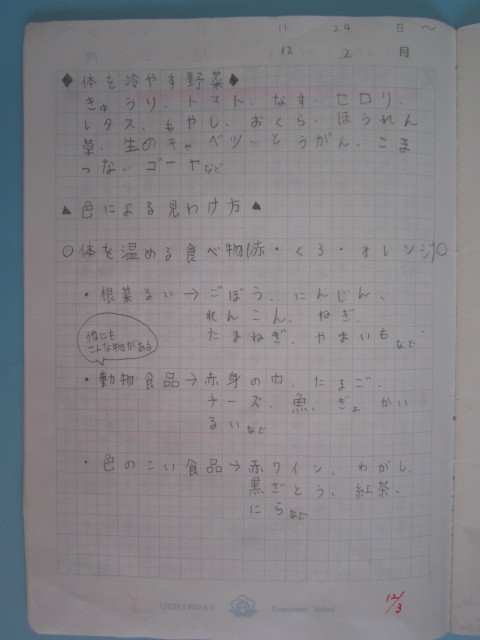 11 24 日 〜
12 2 月
◆体を冷やす野菜◆
きゅうり、トマト、なす、セロリ、
レタス、もやし、おくら、ほうれん
草、生のキャベツ、とうがん、こま
つな、ゴーヤなど
▲色による見わけ方▲
○体を温める食べ物(赤・くろ・オレンジ)○
・根菜るい→ごぼう、にんじん、
れんこん、ねぎ、
たまねぎ、やまいもなど
他にも
こんな物がある
・動物食品→赤身の肉、たまご、
チーズ、魚、ぎょかい
るいなど
・色のこい食品→赤ワイン、わがし、
黒ざとう、紅茶、
にらなど
UCHINDAI Elementary School
12/3